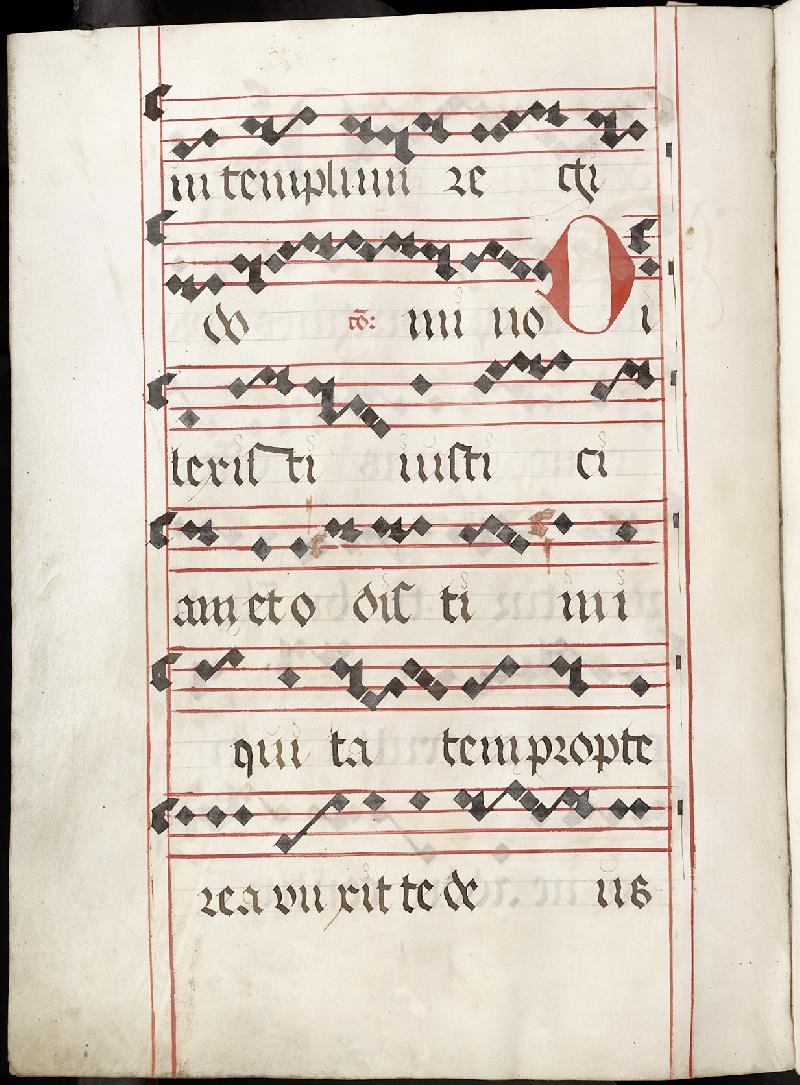 in templum re gi
do cō: mi no Di
lexis ti iusti ci
am et o dis ti ini
qui ta tem propte
rea vn xit te de us